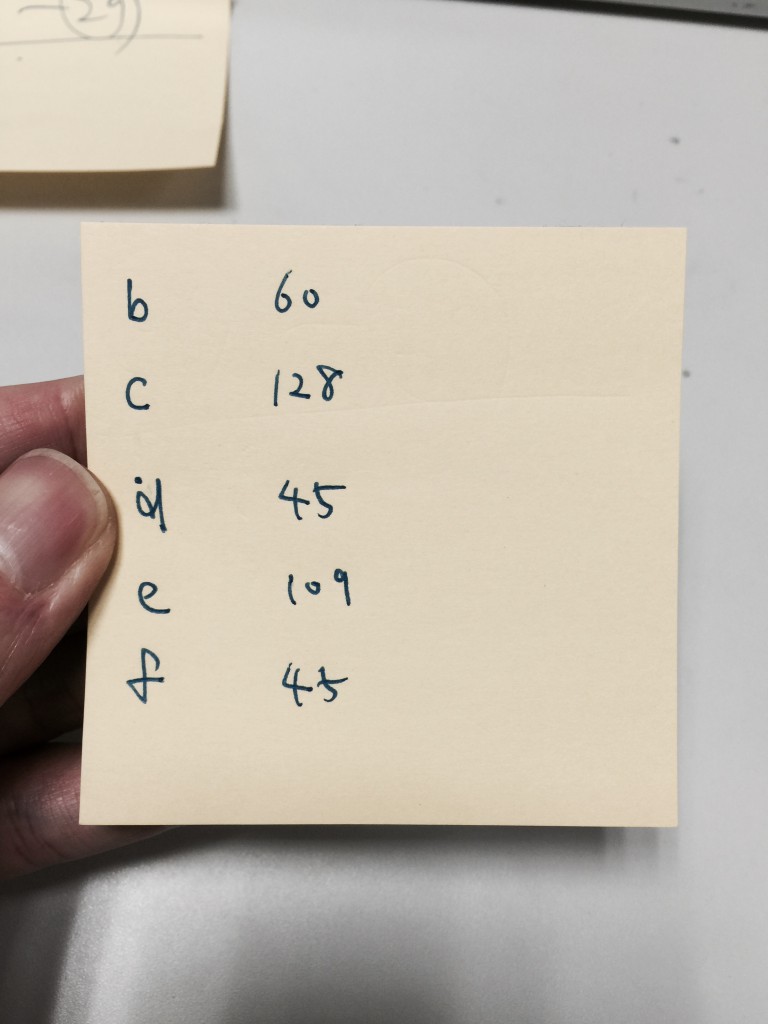 -29)
b 60
c 128
d 45
e 109
f 45